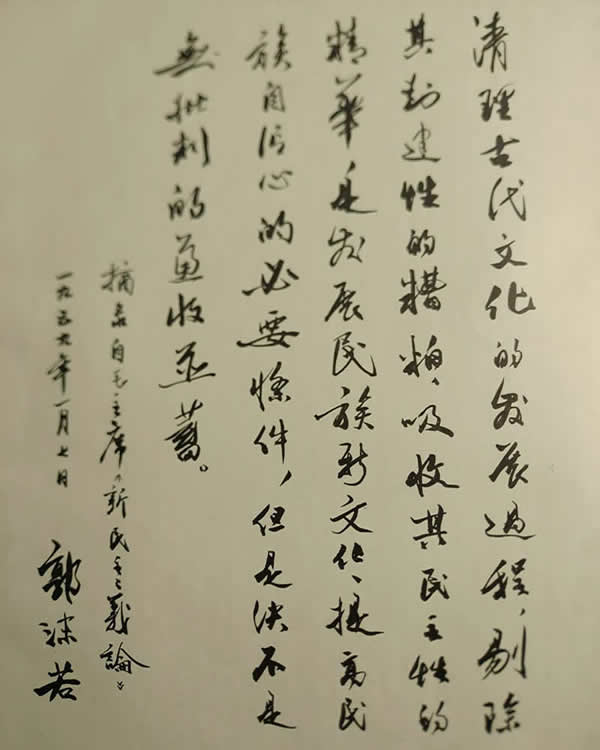 清理古代文化的发展過程，剔除
其封建性的糟粕，吸收其民主性的
精華，是发展民族新文化、提高民
族自信心的必要條件，但是决不是
無批判的兼收並蓄。
摘录自毛主席《新民主主義論》
一九五九年一月七日
郭沫若